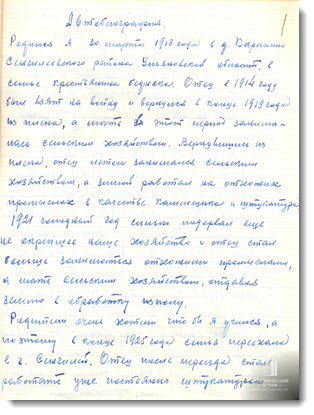 1
Автобиография.
Родился я 30 марта 1913 года в д.
Сенгилеевского района Ульяновской области, в
семье крестьянина бедняка. Отец в 1914 году
был взят на войну и вернулся в конце 1919 года
из плена, а мать за этот период занима-
лась сельским хозяйством. Вернувшись из
плена, отец летом занимался сельским
хозяйством, а зимой работал на отхожих
промыслах в качестве каменщика и штукатура
1921 голодный год сильно подорвал еще
не окрепшее наше хозяйство и отец стал
больше заниматься отхожими промыслами,
а мать сельским хозяйством, отдавая
землю в обработку исполу.
Родители очень хотели что бы я учился, а
поэтому в конце 1925 года семья переехала
в г. Сенгилей. Отец после переезда стал
работать уже постоянно штукатуром